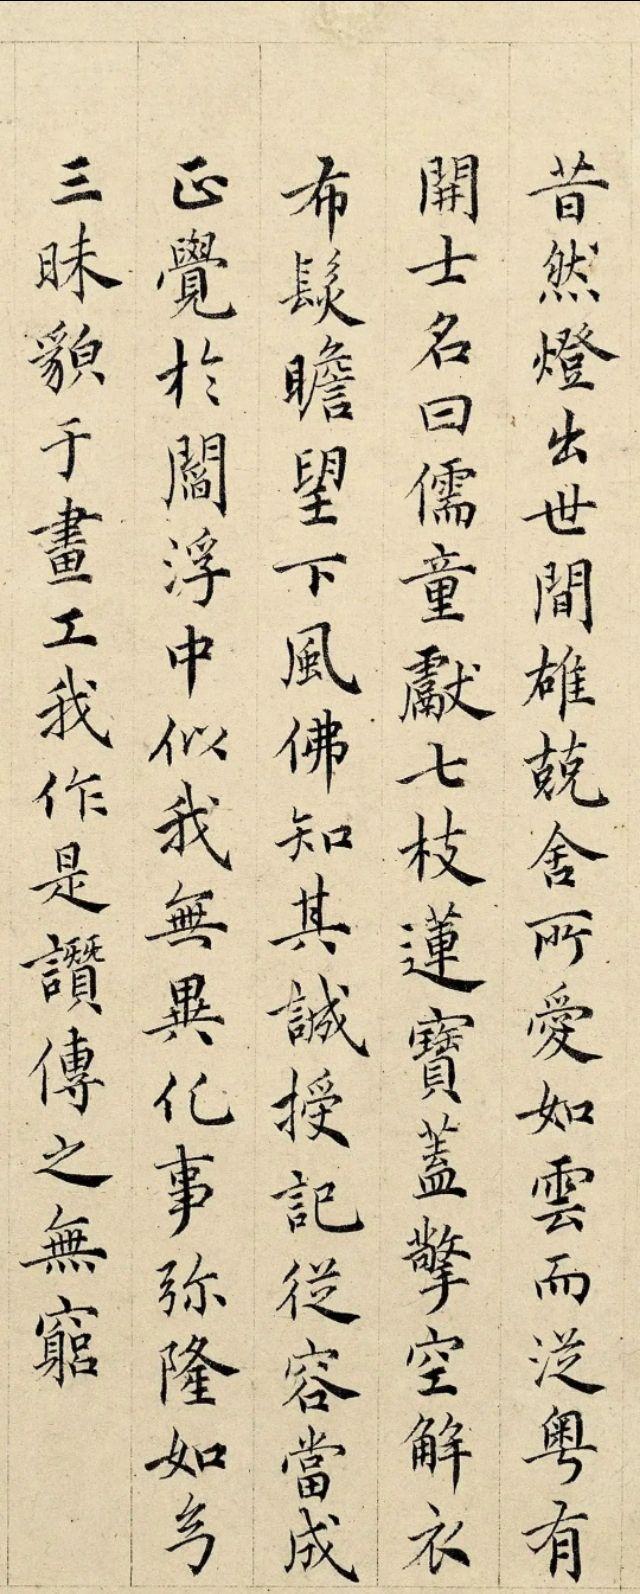 昔然燈出世間雄兢舍所愛如雲而從粤有
開士名曰儒童獻七枝蓮寶蓋擎空解衣
布髮瞻望下風佛知其誠授記從容當成
正覺於閻浮中似我無異化事弥隆如是
三昧貌于畫工我作是讚傳之無窮